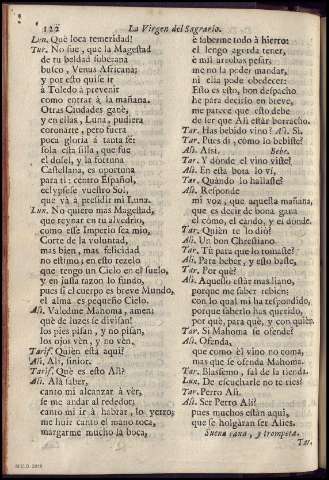 122 La Virgen del Sagrario.
Lun. Què loca temeridad!
Tar. No fue, que la Magestad
de tu beldad soberana
busco, Venus Africana;
y por esto quise ir
à Toledo à prevenir
como entrar à la mañana.
Otras Ciudades ganè,
y en ellas, Luna, pudiera
coronarte, pero fuera
poca gloria à tanta fè:
sola esta silla, que fue
el dosel, y la fortuna
Castellana, es oportuna
para ti: centro Español,
eclypsese vuestro Sol,
que và à presidir mi Luna.
Lun. No quiero mas Magestad,
que reynar en tu alvedrio,
como esse Imperio sea mio,
Corte de la voluntad,
mas bien, mas felicidad
no estimo; en esto rezelo
que tengo un Cielo en el suelo,
y en justa razon lo fundo,
pues si el cuerpo es breve Mundo,
el alma es pequeño Cielo.
Ali. Valedme Mahoma, amen:
què de luzes se divisan!
los pies pisan, y no pisan,
los ojos vèn, y no vèn.
Tarif. Quièn està aqui?
Ali. Ali, sinior.
Tarif. Què es esto Ali?
Ali. Alà saber,
canto mi alcanzar à vèr,
se me andar al rededor;
canto mi ir à habrar, lo yerro;
me huir canto el mano toca,
margarme mucho la boca,
è saberme todo à hierro:
el lengo agorda tener,
è mil arrobas pesar;
me no la poder mandar,
ni ella pode obedecer:
Esto es esto, bon despacho,
he para decirlo en breve,
me parece que esto debe
de ser que Ali estàr borracho.
Tar. Has bebido vino? Ali. Si.
Tar. Pues di, còmo lo bebiste?
Ali. Aisi. Bebe.
Tar. Y dònde el vino viste?
Ali. En esta bota lo vi,
Tar. Quàndo lo hallaste?
Ali. Responde
mi voz, que aquella mañana,
que es decir de bona gana
el còmo, el cando, y el dònde.
Tar. Quièn te lo diò?
Ali. Un bon Chrestiano.
Tar. Tù para què lo tomaste?
Ali. Para beber, y esto baste,
Tar. Por què?
Ali. Aquello estàr mas llano,
porque me saber rebien;
con lo qual mi ha respondido,
porque saberlo has querido,
por què, para què, y con quièn.
Tar. Si Mahoma se ofende?
Ali. Ofenda,
que como èl vino no coma,
mas que se ofenda Mahoma.
Tar. Blasfemo, sal de la tienda.
Lun. De escucharle no te ries?
Tar. Perro Ali.
Ali. Ser Perro Ali?
pues muchos estàn aqui,
que se holgàran ser Alies.
Suena caxa, y trompeta.
Tar.